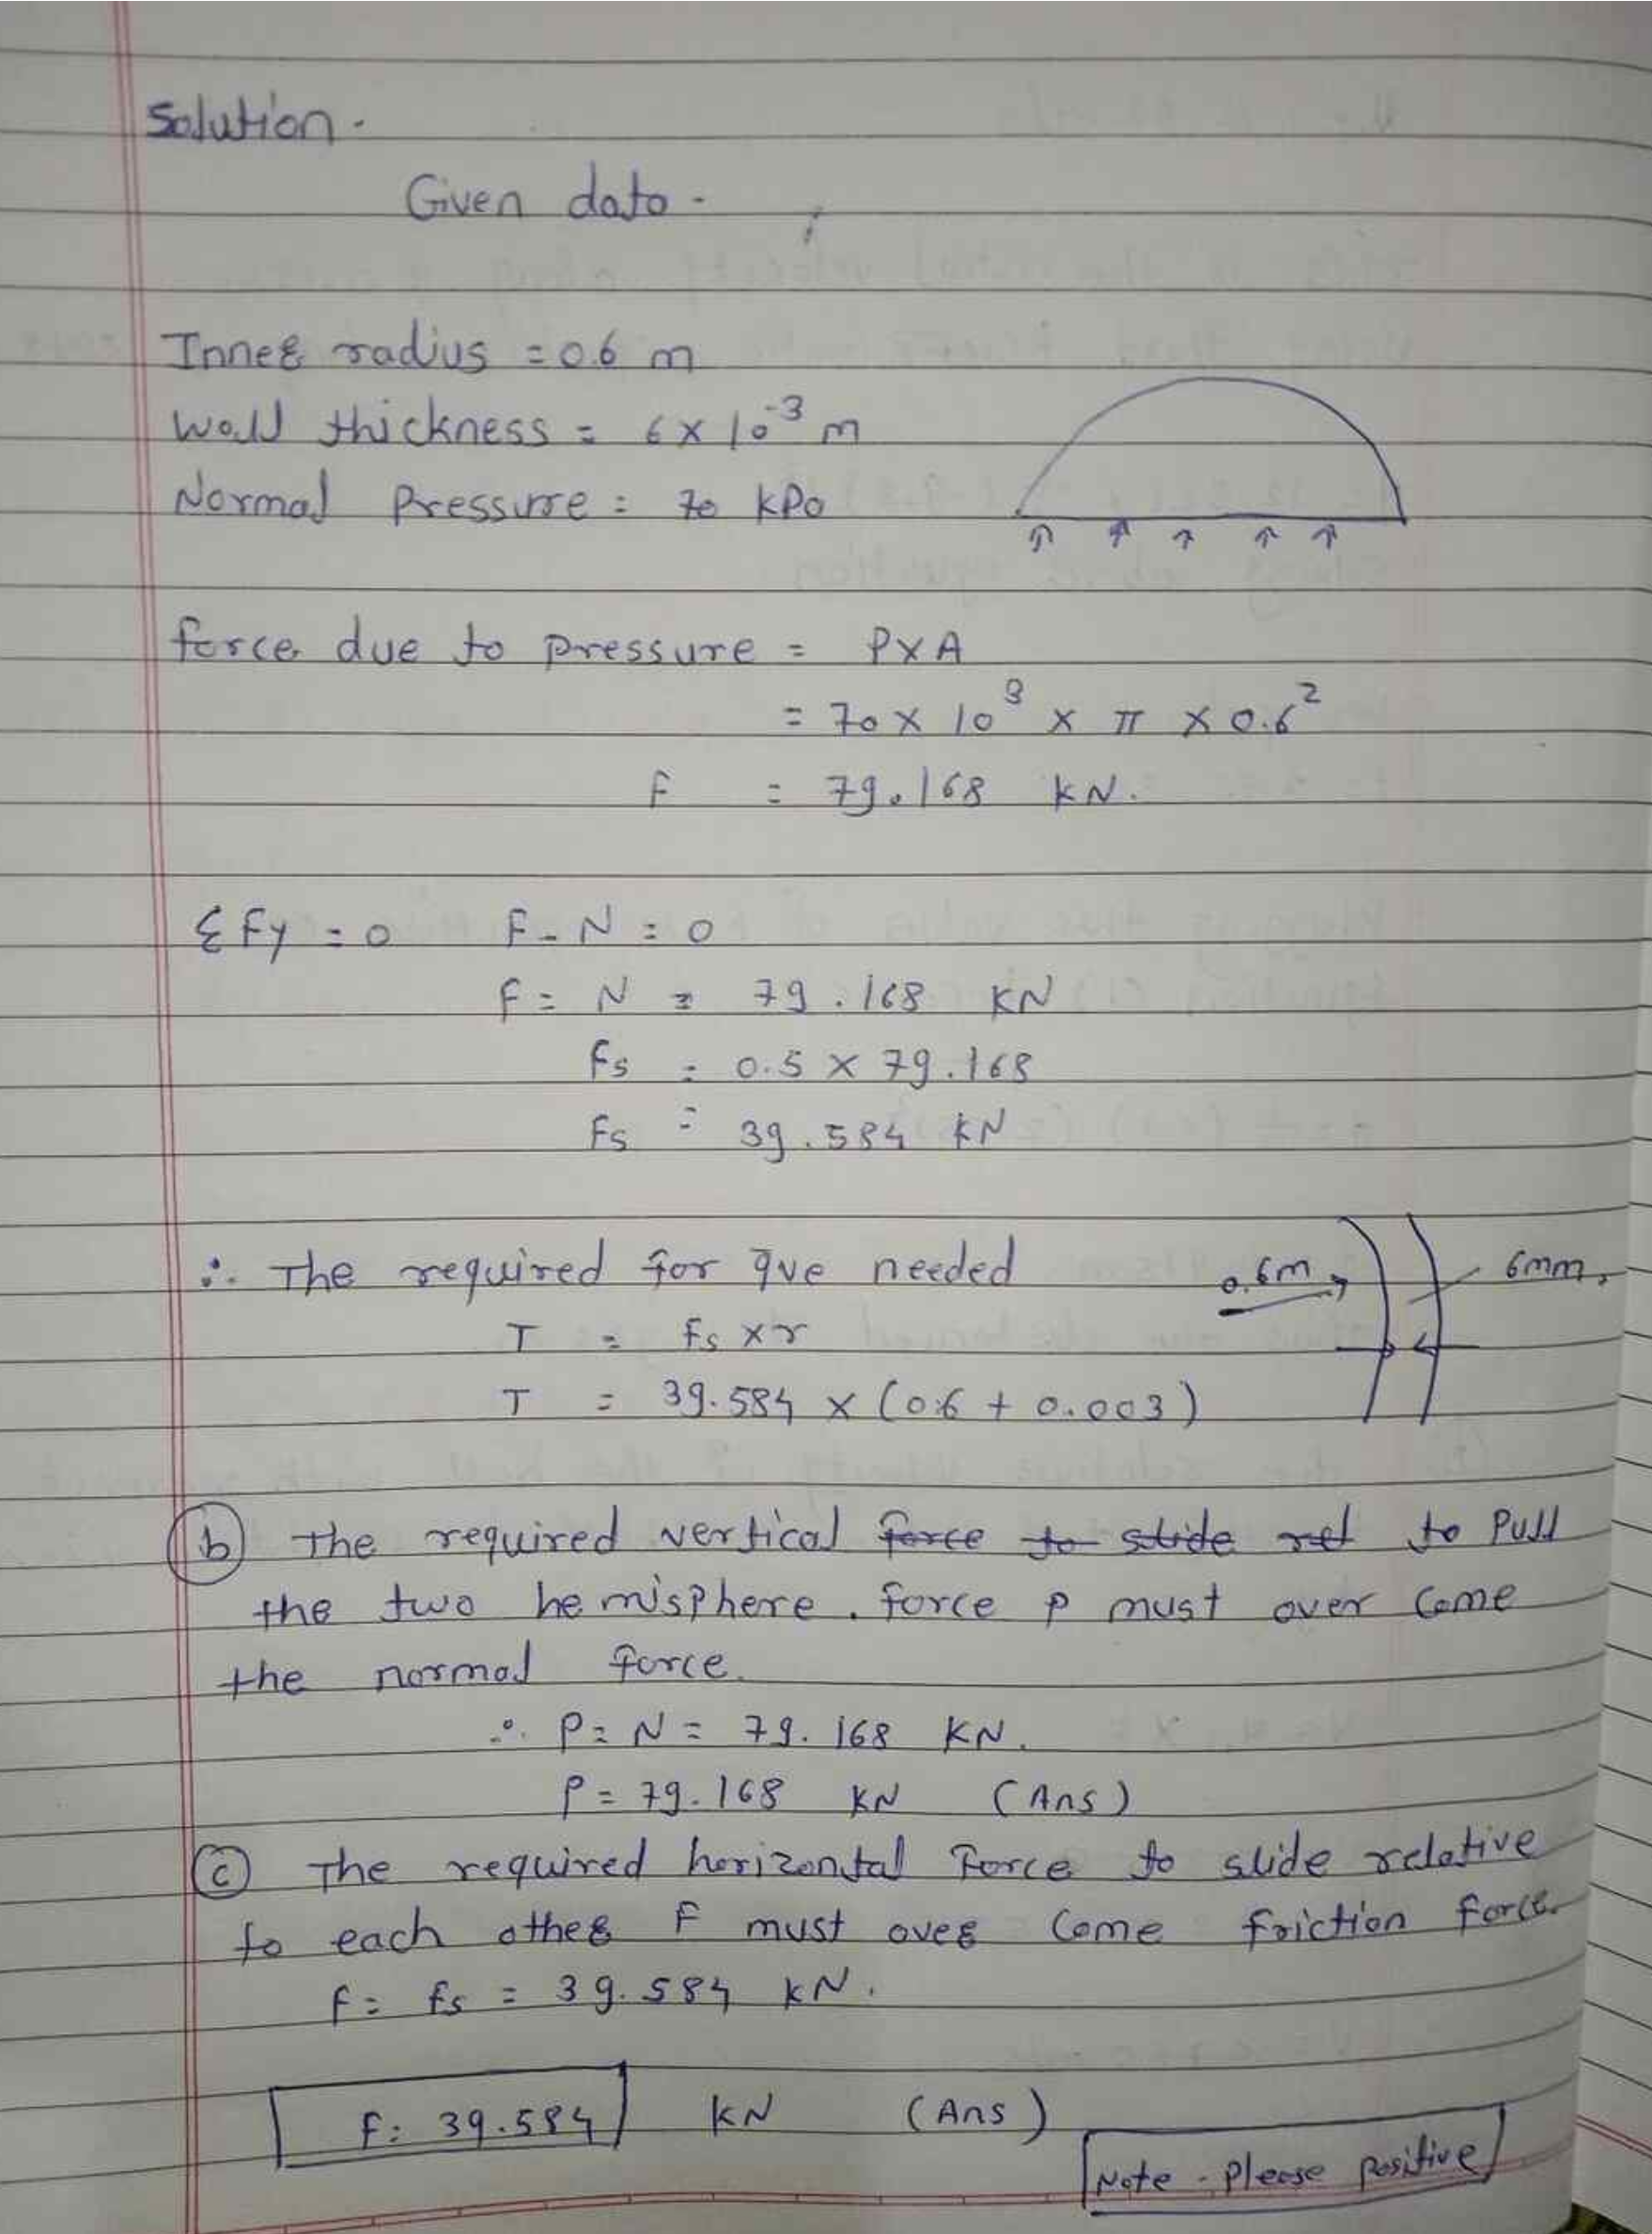 Solution.
Given data -
Inner radius = 0.6 m
Wall thickness = 6 × 10⁻³ m
Normal Pressure = 70 kPa
force due to pressure = P×A
= 70 × 10³ × π × 0.6²
F = 79.168 kN.
Σfy = 0 F - N = 0
F = N = 79.168 KN
Fs = 0.5 × 79.168
Fs = 39.584 kN
∴ The required for que needed
0.6m
6mm,
T = Fs × r
T = 39.584 × (0.6 + 0.003)
(b) The required vertical force to slide rel to Pull
the two hemisphere. force P must over come
the normal force.
∴ P = N = 79.168 KN.
P = 79.168 KN (Ans)
(c) The required horizontal Force to slide relative
to each other F must over come friction force.
F = fs = 39.584 kN.
F = 39.584 KN (Ans)
Note - Please positive